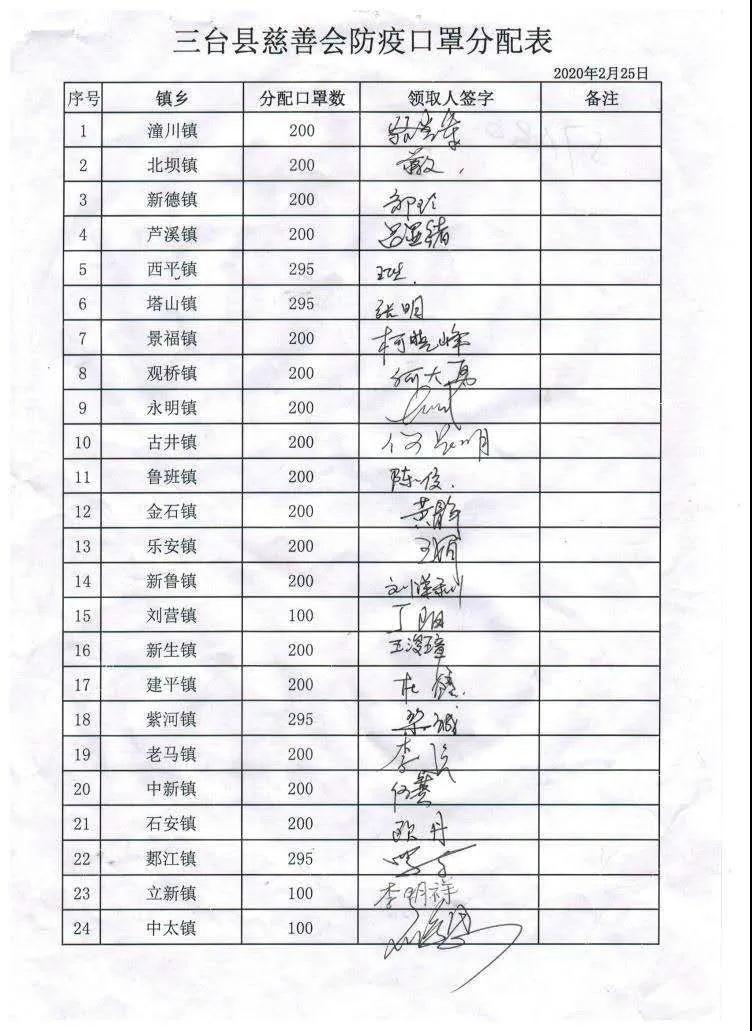 三台县慈善会防疫口罩分配表
2020年2月25日
序号 镇乡 分配口罩数 领取人签字 备注
1 潼川镇 200
2 北坝镇 200
3 新德镇 200
4 芦溪镇 200
5 西平镇 295
6 塔山镇 295 张明
7 景福镇 200 柯晓峰
8 观桥镇 200 何大勇
9 永明镇 200
10 古井镇 200
11 鲁班镇 200 陈俊
12 金石镇 200 黄静
13 乐安镇 200
14 新鲁镇 200
15 刘营镇 100 丁阳
16 新生镇 200
17 建平镇 200
18 紫河镇 295
19 老马镇 200
20 中新镇 200
21 石安镇 200 欧丹
22 郪江镇 295
23 立新镇 100 李明祥
24 中太镇 100